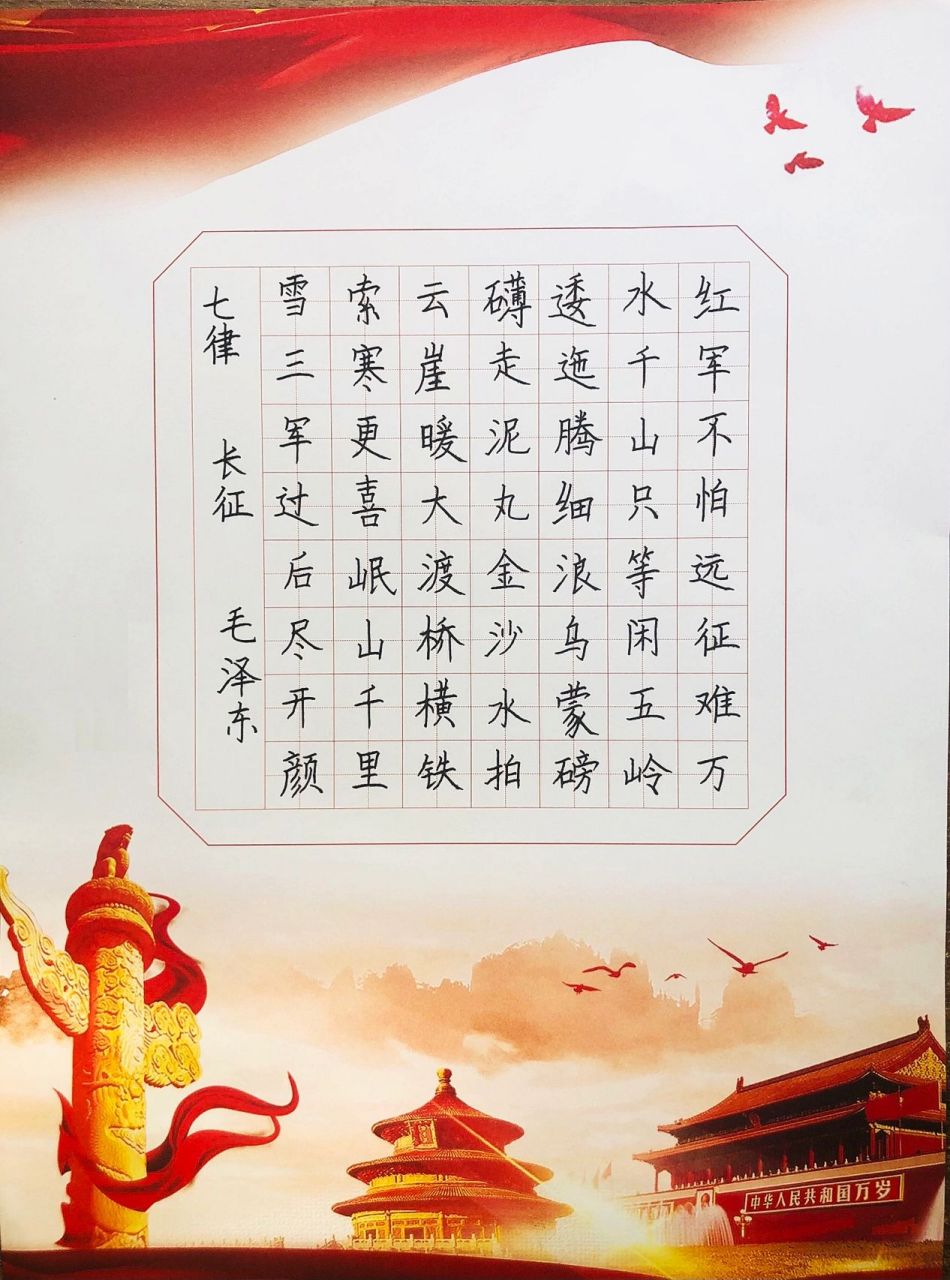 红军不怕远征难万
水千山只等闲五岭
逶迤腾细浪乌蒙磅
礴走泥丸金沙水拍
云崖暖大渡桥横铁
索寒更喜岷山千里
雪三军过后尽开颜
七律 长征 毛泽东
中华人民共和国万岁